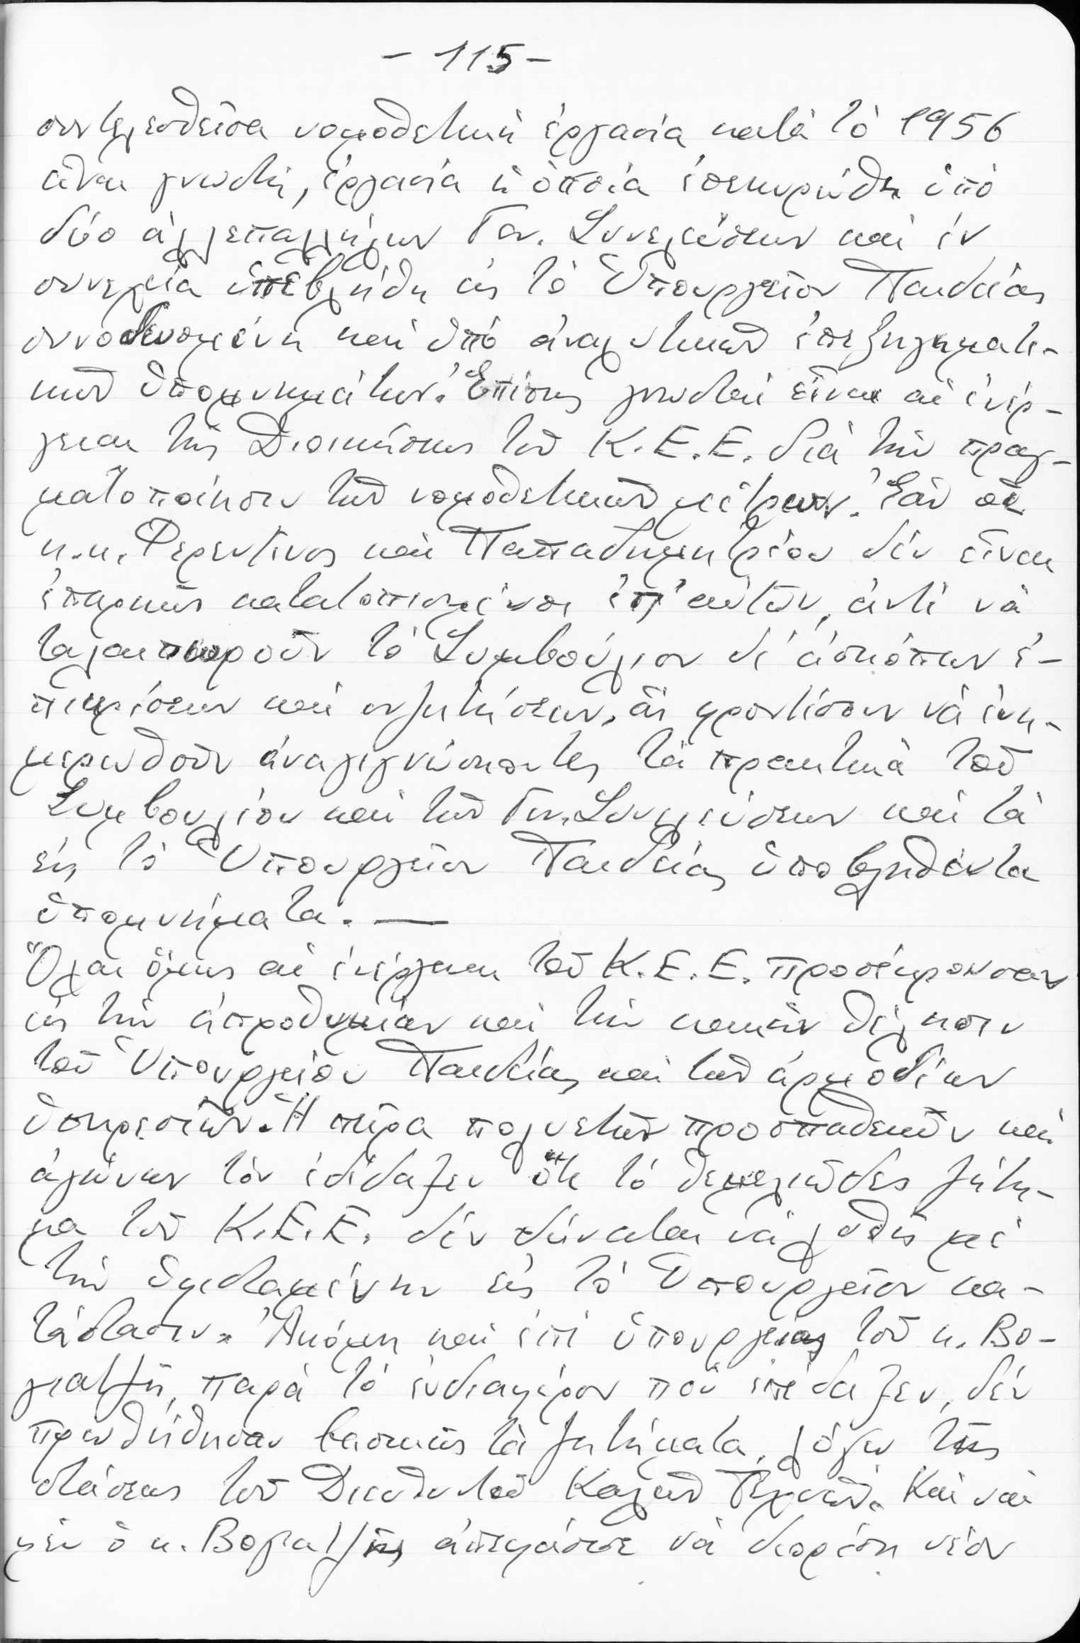 - 115 -
συντελεσθεῖσα νομοθετική ἐργασία κατά τό 1956
εἶναι γνωστή, ἐργασία ἡ ὁποία ἐπεκυρώθη ὑπό
δύο ἀλλεπαλλήλων Γεν. Συνελεύσεων καί ἐν
συνεχείᾳ ὑπεβλήθη εἰς τό Ὑπουργεῖον Παιδείας
συνοδευομένη καί ὑπό ἀναλυτικῶν ἐπεξηγηματι-
κῶν ὑπομνημάτων. Ἐπίσης γνωσταί εἶναι αἱ ἐνέρ-
γειαι τῆς Διοικήσεως τοῦ Κ.Ε.Ε. διά τήν πραγ-
ματοποίησιν τῶν νομοθετικῶν μέτρων. Ἐάν οἱ
κ.κ. Φερεντῖνος καί Παπαδημητρίου δέν εἶναι
ἐπαρκῶς κατατοπισμένοι ἐπ' αὐτῶν, ἀντί νά
ταλαιπωροῦν τό Συμβούλιον δι' ἀσκόπων ἐ-
πικρίσεων καί συζητήσεων, ἄς φροντίσουν νά ἐνη-
μερωθοῦν ἀναγιγνώσκοντες τά πρακτικά τοῦ
Συμβουλίου καί τῶν Γεν. Συνελεύσεων καί τά
εἰς τό Ὑπουργεῖον Παιδείας ὑποβληθέντα
ὑπομνήματα. —
Ὅλαι ὅμως αἱ ἐνέργειαι τοῦ Κ.Ε.Ε. προσέκρουσαν
εἰς τήν ἀπροθυμίαν καί τήν κακήν θέλησιν
τοῦ Ὑπουργείου Παιδείας καί τῶν ἁρμοδίων
ὑπηρεσιῶν. Ἡ πεῖρα πολυετῶν προσπαθειῶν καί
ἀγώνων τόν ἐδίδαξεν ὅτι τό θεμελιῶδες ζήτη-
μα τοῦ Κ.Ε.Ε. δέν δύναται νά λυθῇ μέ
τήν ὑφισταμένην εἰς τό Ὑπουργεῖον κα-
τάστασιν. Ἀκόμη καί ἐπί ὑπουργείας τοῦ κ. Βο-
γιατζῆ, παρά τό ἐνδιαφέρον πού ἐπέδειξεν, δέν
προωθήθησαν βασικῶς τά ζητήματα, λόγῳ τῆς
στάσεως τοῦ Διευθυντοῦ Καλῶν Τεχνῶν. Καί ναί
μέν ὁ κ. Βογιατζῆς ἀπεφάσισε νά διορίσῃ νέον